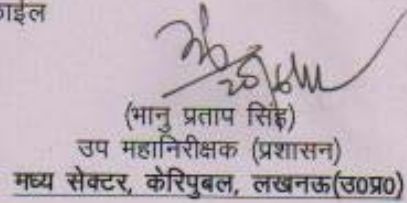 फाईल
(भानु प्रताप सिंह)
उप महानिरीक्षक (प्रशासन)
मध्य सेक्टर, केरिपुबल, लखनऊ(उ0प्र0)